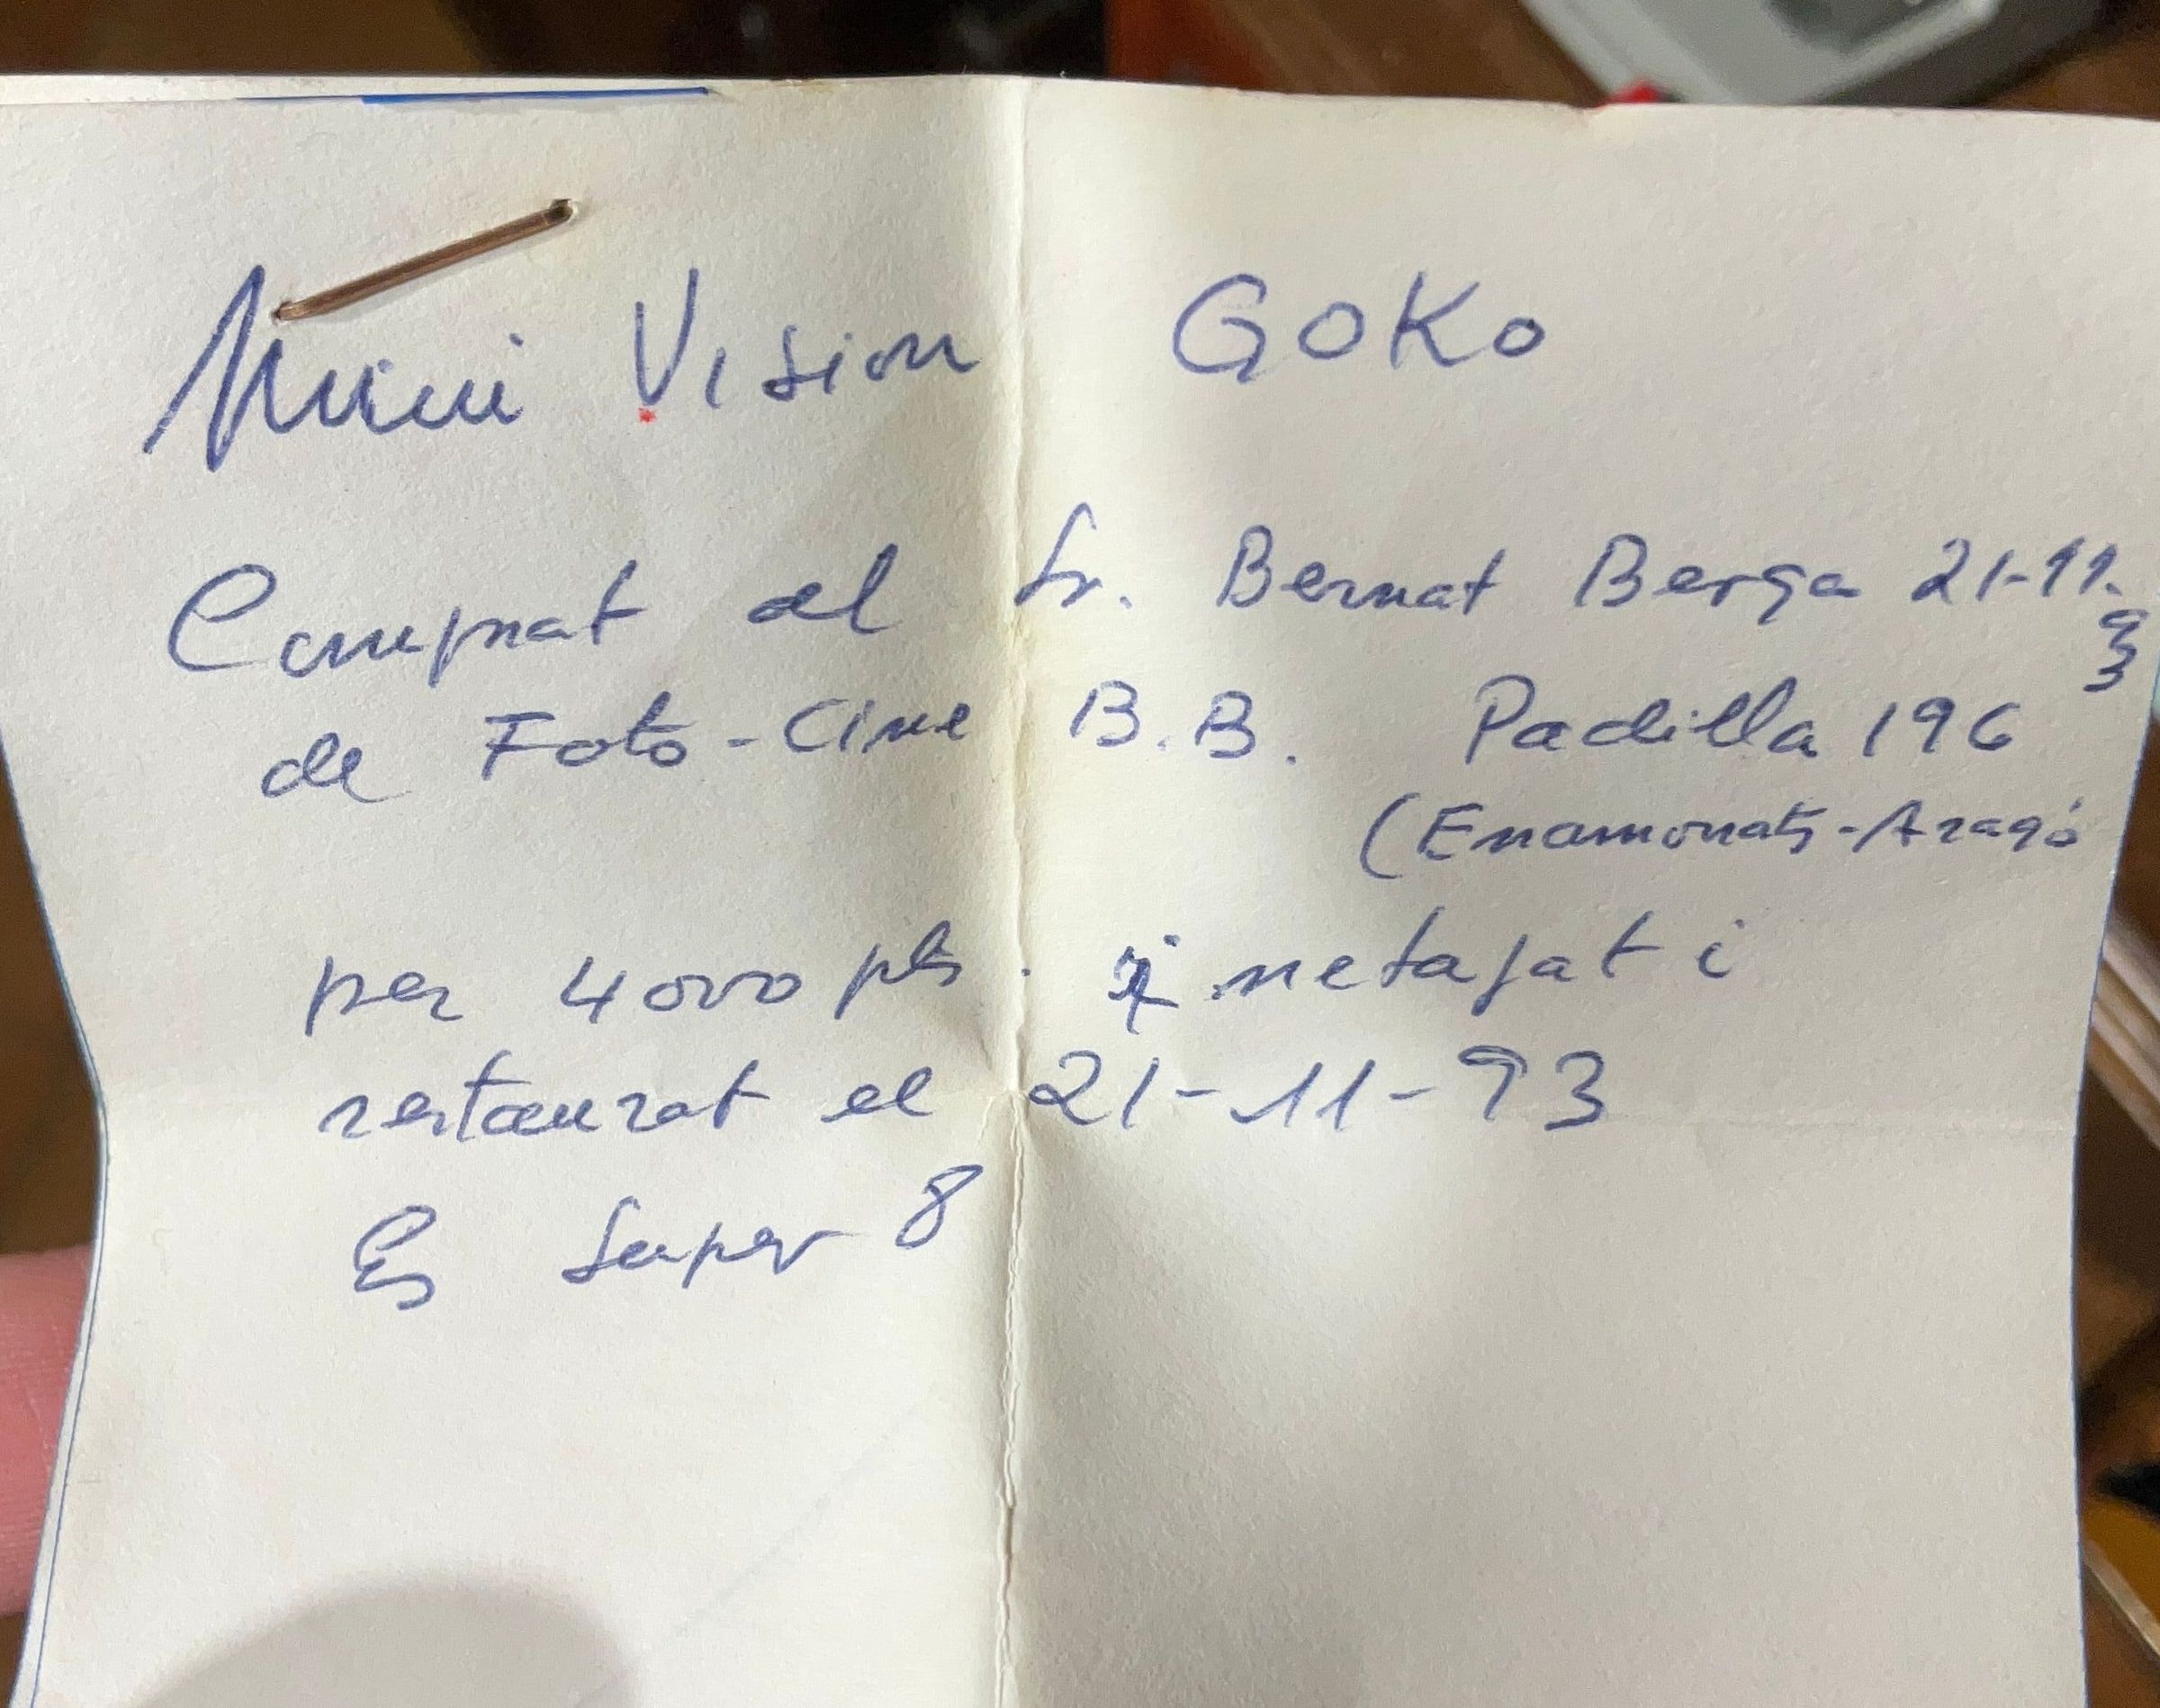 Mini Vision GOKO
Comprat al Sr. Bernat Berga 21-11-93
de Foto-Cine B.B. Padilla 196
(Enamorats-Aragó
per 4000 pts. i netejat i
restaurat el 21-11-93
Es Super 8